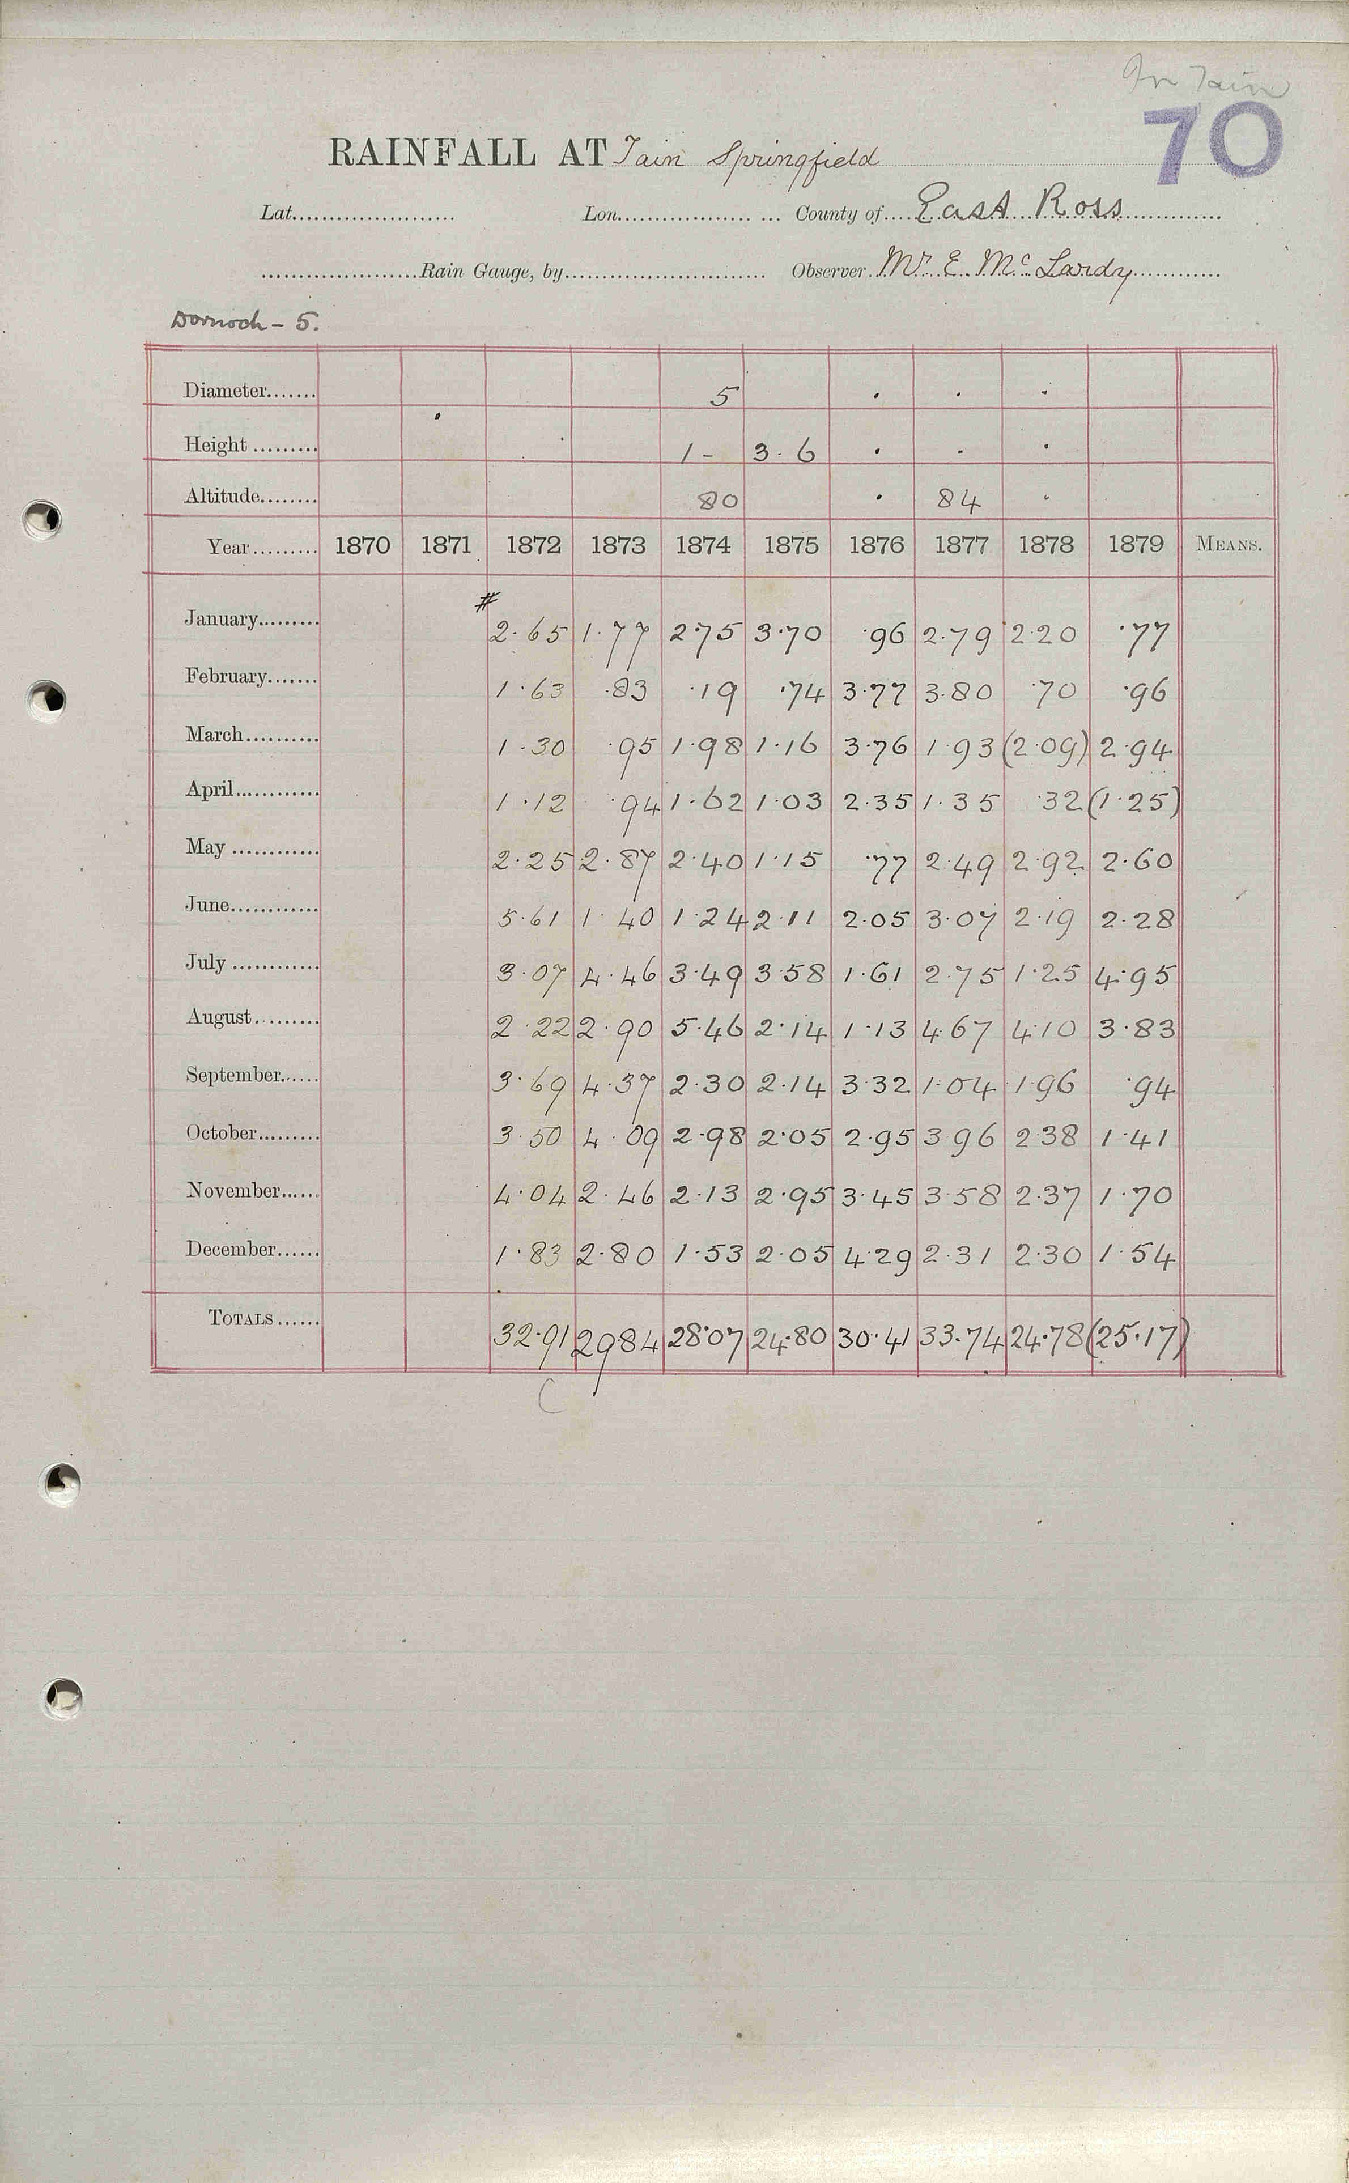 In Tain
70
RAINFALL AT Tain Springfield
Lat. Lon. County of East Ross
Rain Gauge, by Observer Mr E. McLardy
Dornoch - 5.
Diameter 5 · · ·
Height 1 - 3·6 · · ·
Altitude 80 · 84 ·
Year 1870 1871 1872 1873 1874 1875 1876 1877 1878 1879 MEANS.
#
January 2·65 1·77 2·75 3·70 ·96 2·79 2·20 ·77
February 1·63 ·83 ·19 ·74 3·77 3·80 ·70 ·96
March 1·30 ·95 1·98 1·16 3·76 1·93 (2·09) 2·94
April 1·12 ·94 1·62 1·03 2·35 1·35 ·32 (1·25)
May 2·25 2·87 2·40 1·15 ·77 2·49 2·92 2·60
June 5·61 1·40 1·24 2·11 2·05 3·07 2·19 2·28
July 3·07 4·46 3·49 3·58 1·61 2·75 1·25 4·95
August 2·22 2·90 5·46 2·14 1·13 4·67 4·10 3·83
September 3·69 4·37 2·30 2·14 3·32 1·04 1·96 ·94
October 3·50 4·09 2·98 2·05 2·95 3·96 2·38 1·41
November 4·04 2·46 2·13 2·95 3·45 3·58 2·37 1·70
December 1·83 2·80 1·53 2·05 4·29 2·31 2·30 1·54
TOTALS 32·91 29 84 28·07 24·80 30·41 33·74 24·78 (25·17)
C